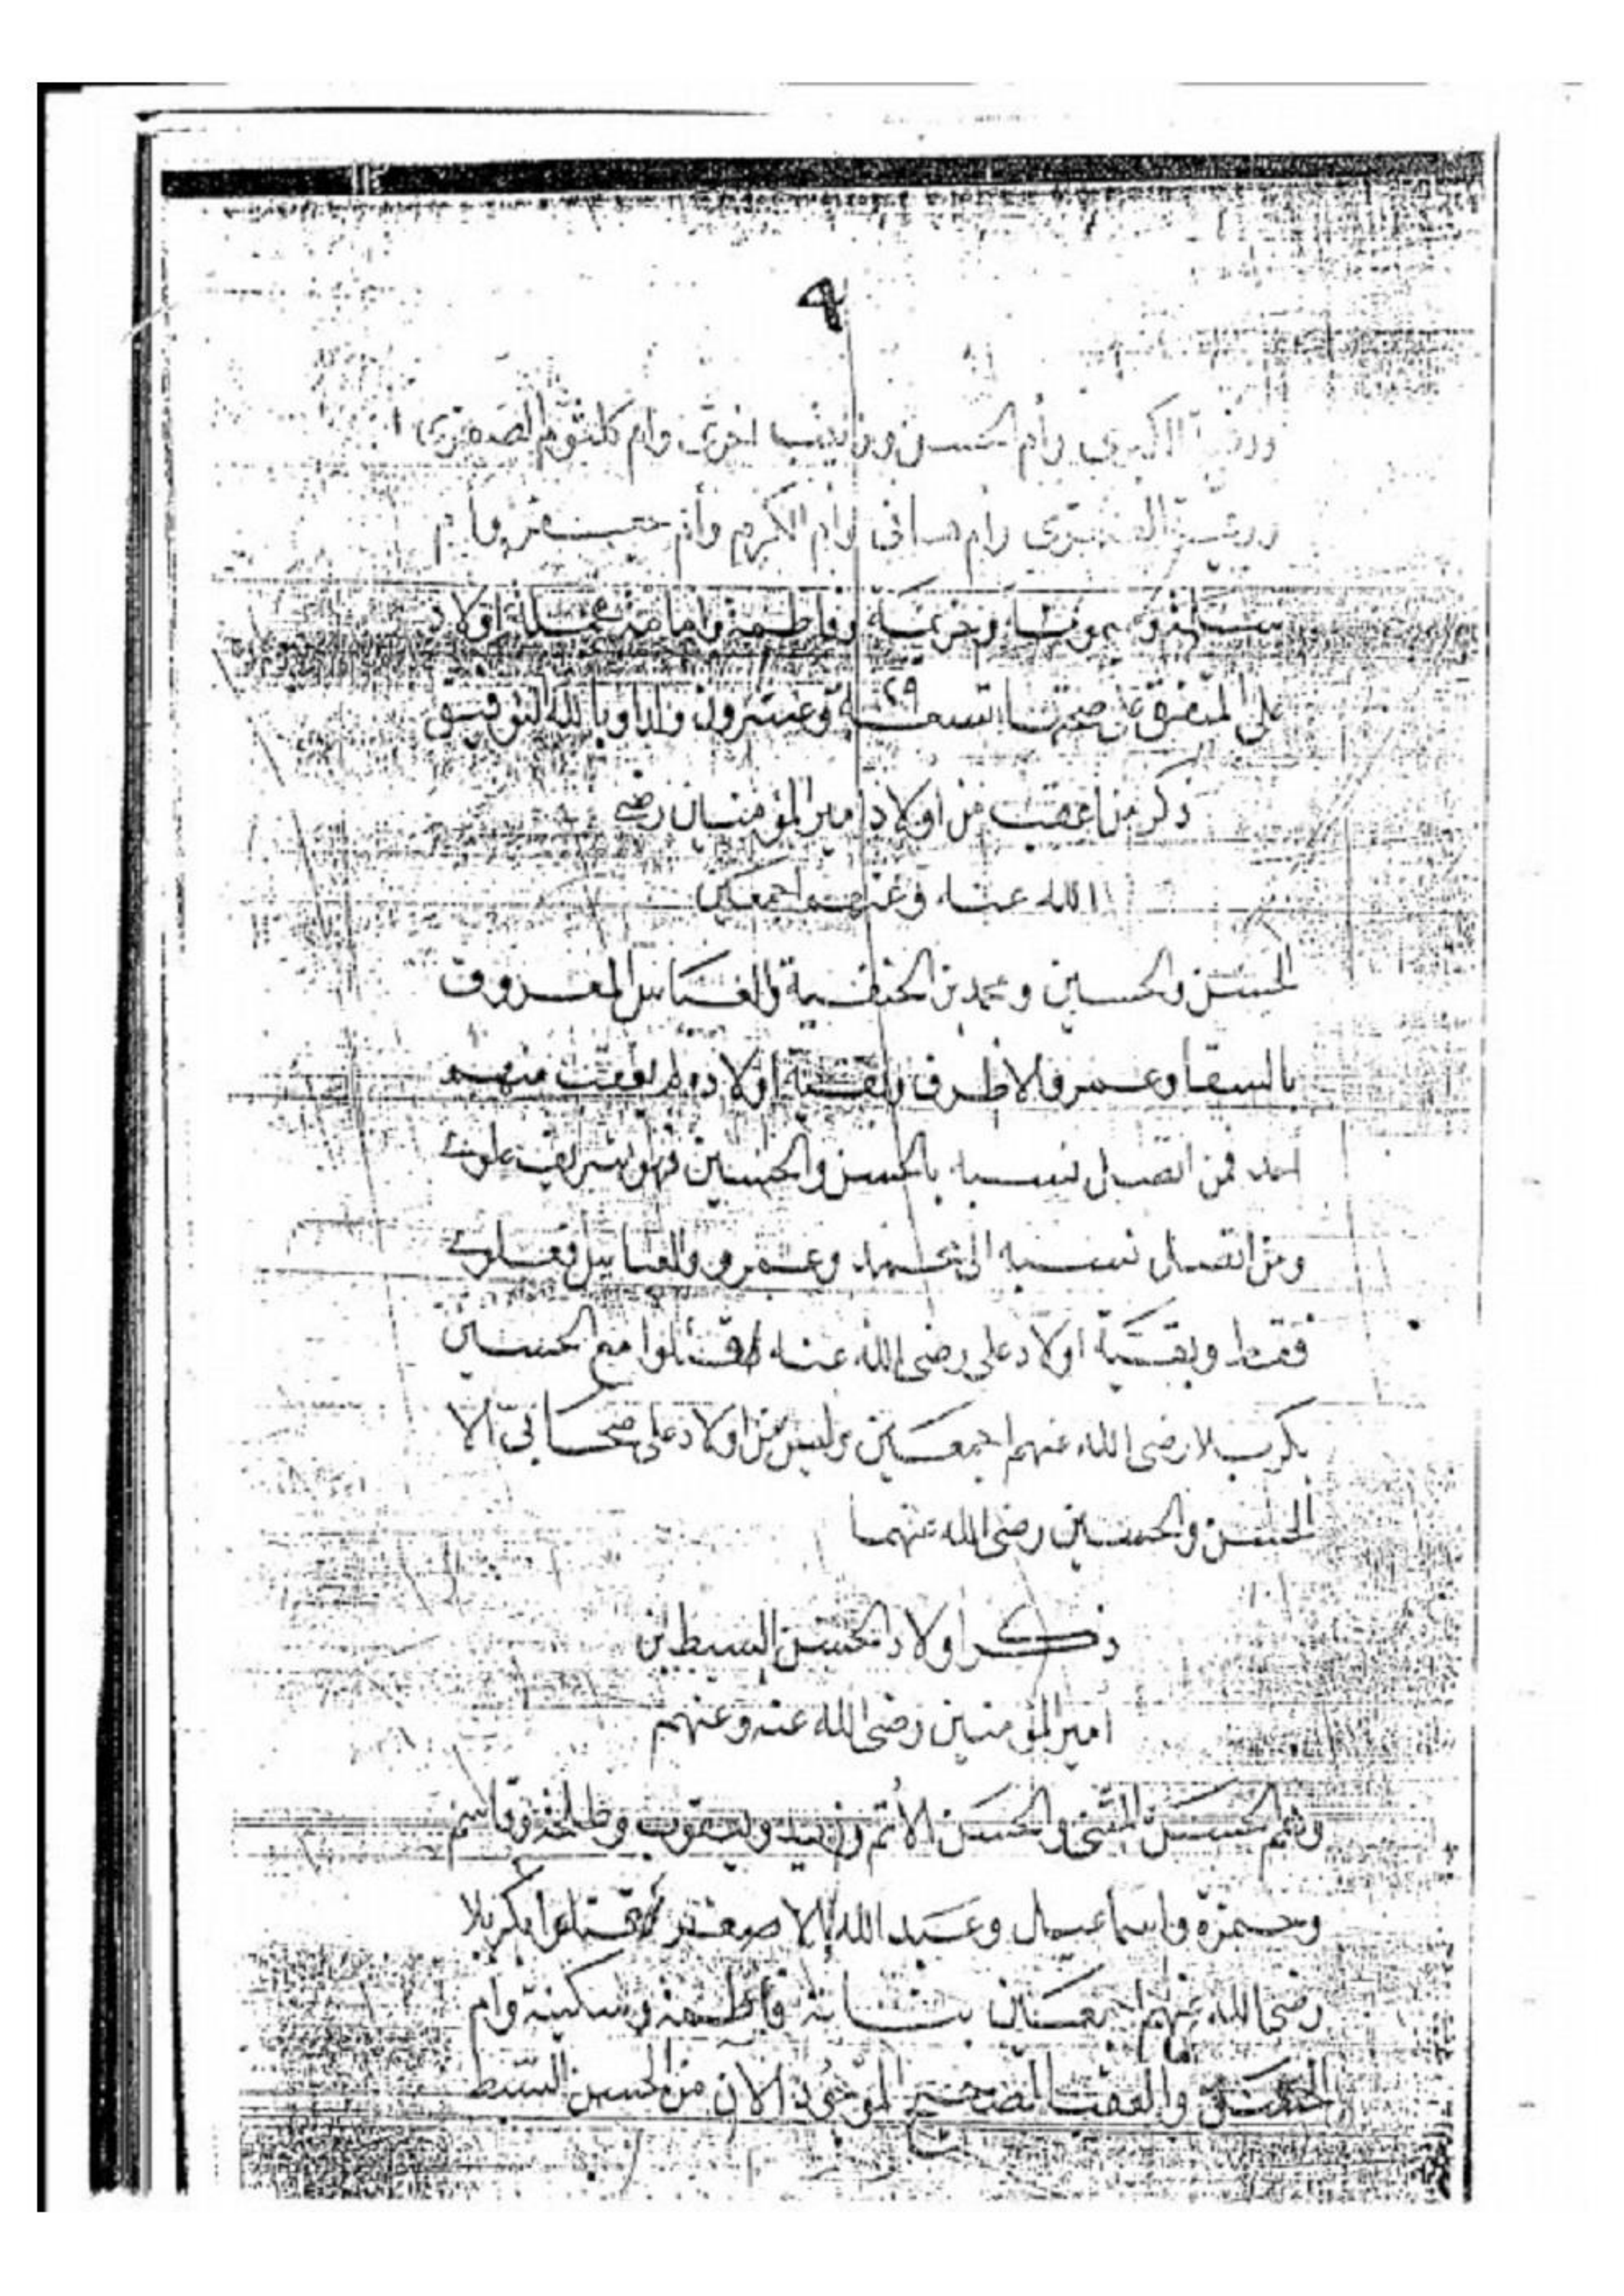 ٩
الكبرى وأم الحسن وزينب اخرى وام كلثوم الصغرى
ورقية الصغرى وام هانى وام الكرم وأم جعفر وأم
سلمة وميمونة وخديمة وفاطمة وامامة فجملة اولاد
على المتفق على صحتها تسعة وعشرون ولدا وبالله التوفيق
٢٩
ذكر من اعقب من اولاد امير المؤمنين رضى
الله عنه وعنهم اجمعين
الحسن والحسين ومحمد بن الحنفية والعباس المعروف
بالسقا وعمرو الاطرف وبقية اولاده لم يعقب منهم
احد فمن اتصل نسبه بالحسن والحسين فهو شريف علوى
ومن اتصل نسبه الى محمد وعمرو والعباس فعلوى
فقط وبقية اولاد على رضى الله عنه قتلوا مع الحسين
بكربلا رضى الله عنهم اجمعين وليس من اولاد على صحابى الا
الحسن والحسين رضى الله عنهما
ذكر اولاد الحسن السبط ابن
امير المؤمنين رضى الله عنه وعنهم
وهم الحسن المثنى والحسن الأثم وزيد ويعقوب وطلحة وقاسم
وحمزة واسماعيل وعبد الله الاصغر قتلوا بكربلا
رضى الله عنهم اجمعين بناته فاطمة وسكينة وام
الحسن والعقب الصحيح الموجود الآن من الحسن السبط